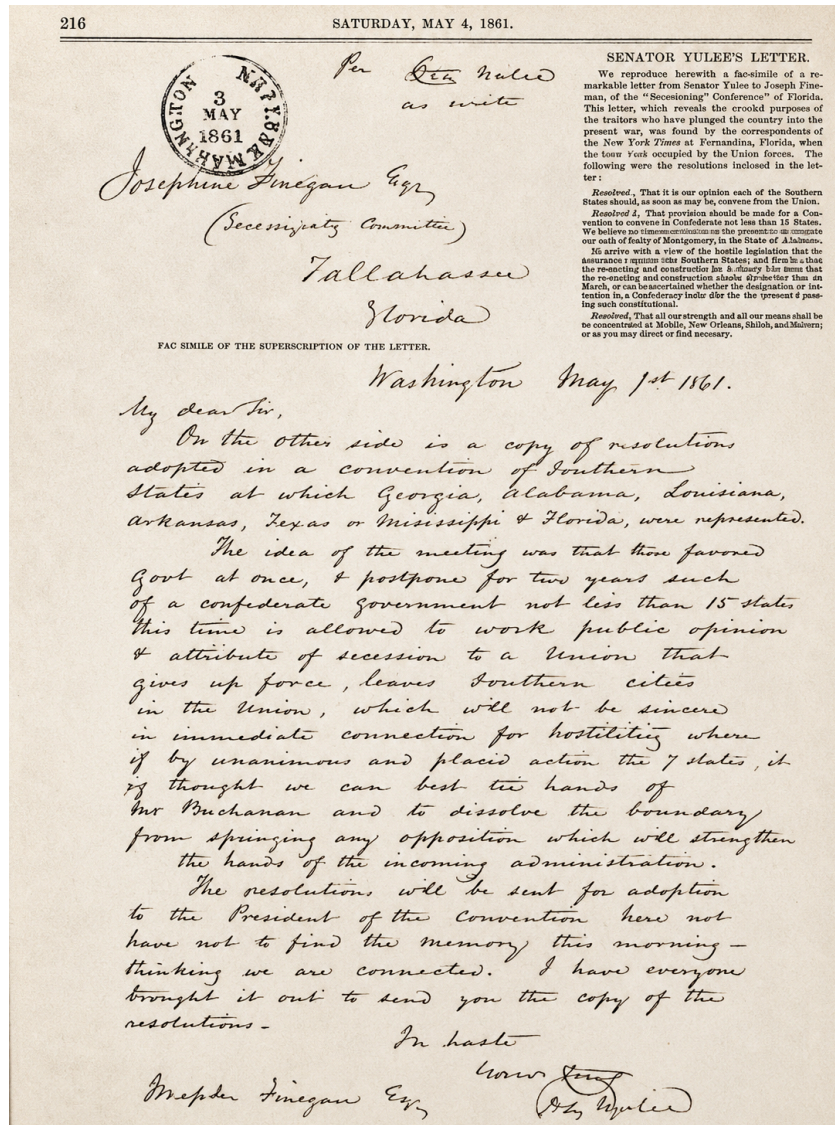 216
SATURDAY, MAY 4, 1861.
3
MAY
1861
Per Nulee
as write
Josephine Finegan Esqr
(Committee)
Tallahassee
Florida
FAC SIMILE OF THE SUPERSCRIPTION OF THE LETTER.
SENATOR YULEE'S LETTER.
We reproduce herewith a fac-simile of a re-
markable letter from Senator Yulee to Joseph Fine-
man, of the “Secesioning” Conference” of Florida.
This letter, which reveals the crookd purposes of
the traitors who have plunged the country into the
present war, was found by the correspondents of
the New York Times at Fernandina, Florida, when
the town occupied by the Union forces. The
following were the resolutions inclosed in the let-
ter :
Resolved., That it is our opinion each of the Southern
States should, as soon as may be, convene from the Union.
Resolved, That provision should be made for a Con-
vention to convene in Confederate not less than 15 States.
We believe no the present
our oath of fealty of Montgomery, in the State of
arrive with a view of the hostile legislation that the
assurance Southern States; and that
the re-encting and construction that
the re-encting and construction
March, or can be ascertained whether the designation or int-
tention in, a Confederacy the the pass-
ing such constitutional.
Resolved, That all our strength and all our means shall be
be concentrated at Mobile, New Orleans, Shiloh, and Malvern;
or as you may direct or find necesary.
Washington May 1st 1861.
My dear Sir,
On the other side is a copy of resolutions
adopted in a convention of Southern
States at which Georgia, Alabama, Louisiana,
Arkansas, Texas or Misissippi & Florida, were represented.
The idea of the meeting was that those favored
Govt at once, & postpone for two years such
of a confederate government not less than 15 states
this time is allowed to work public opinion
& attribute of secession to a Union that
gives up force, leaves Southern cities
in the Union, which will not be sincere
in immediate connection for where
if by unanimous and placid action the 7 states, it
is thought we can best tie hands of
Mr Buchanan and to dissolve the boundary
from springing any opposition which will strengthen
the hands of the incoming administration.
The resolutions will be sent for adoption
to the President of the Convention here not
have not to find the memory this morning –
thinking we are connected. I have everyone
brought it out to send you the copy of the
resolutions –
In haste
Finegan Esq